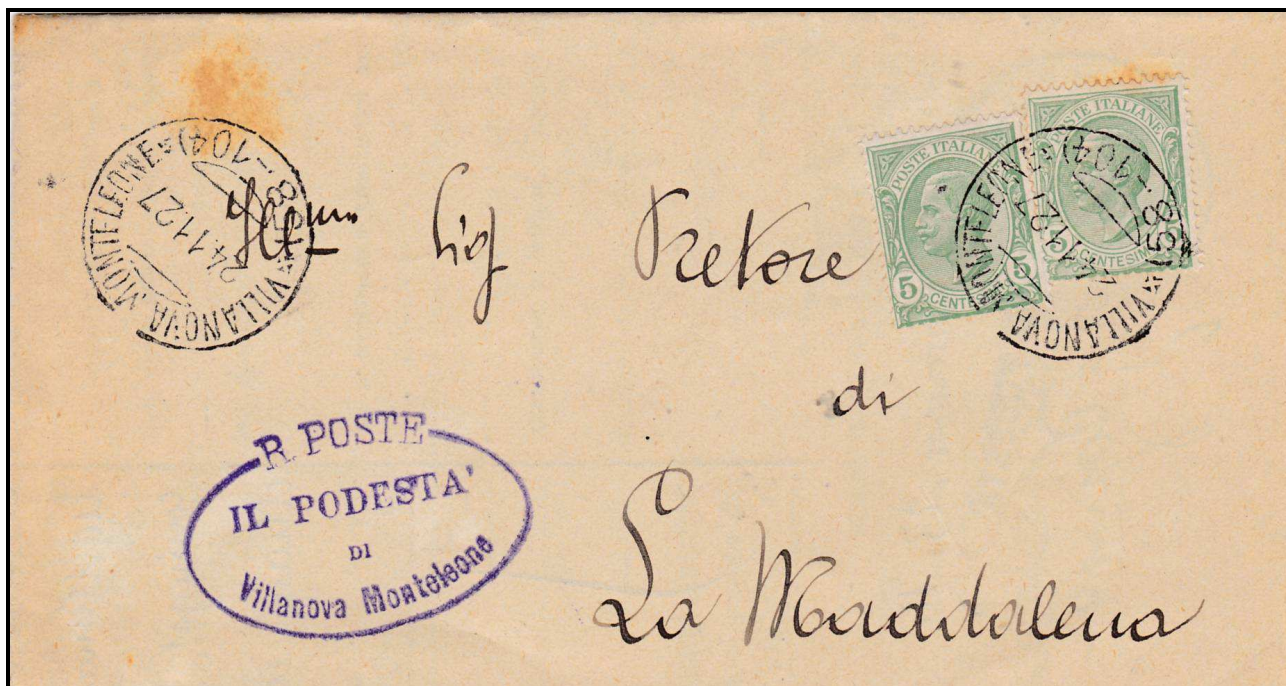 VILLANOVA MONTELEONE (58-104)
24.11.27
Ill.mo Sig Pretore
di
La Maddalena
POSTE ITALIANE
5 CENTESIMI 5
POSTE ITALIANE
CENTESIMI
VILLANOVA MONTELEONE (58-104)
24.11.27
R. POSTE
IL PODESTA'
DI
Villanova Monteleone